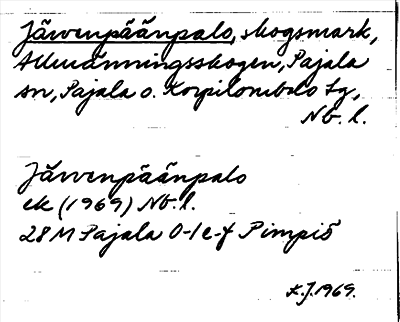 Järvenpäänpalo, skogsmark,
Allmänningsskogen, Pajala
sn, Pajala o. Korpilombolo tg,
Nb. l.
Järvenpäänpalo
ek (1969) Nb. l.
28M Pajala 0-1 e-f Pimpiö
K.J. 1969.